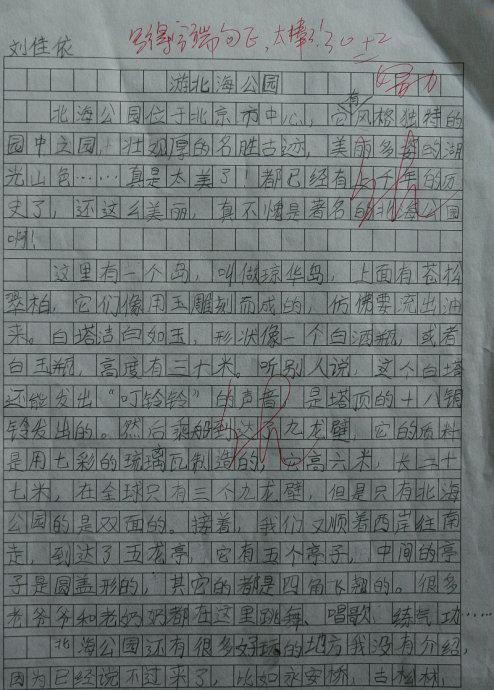 刘佳依
30+2
努力
游北海公园
北海公园位于北京市中心，它有风格独特的
园中之园，壮观厚的名胜古迹，美丽多姿的湖
光山色……真是太美了！都已经有 千年的历
史了，还这么美丽，真不愧是著名的北海公园
啊！
这里有一个岛，叫做琼华岛，上面有苍松
翠柏，它们像用玉雕刻而成的，仿佛要流出油
来。白塔洁白如玉，形状像一个白酒瓶，或者
白玉瓶，高度有三十米。听别人说，这个白塔
还能发出“叮铃铃”的声音，是塔顶的十八铜
铃发出的。然后乘船到达了九龙壁，它的质料
是用七彩的琉璃瓦制造的，高六米，长二十
七米，在全球只有三个九龙壁，但是只有北海
公园的是双面的。接着，我们又顺着西岸往南
走，到达了五龙亭，它有五个亭子，中间的亭
子是圆盖形的，其它的都是四角飞翘的。很多
老爷爷和老奶奶都在这里跳舞、唱歌、练气功……
北海公园还有很多好玩的地方我没有介绍，
因为已经说不过来了，比如永安桥，古松林，